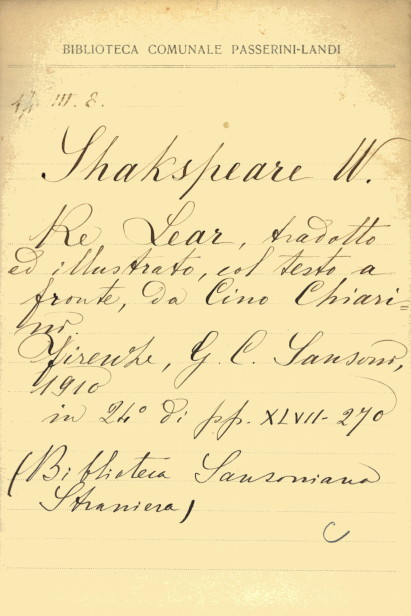 BIBLIOTECA COMUNALE PASSERINI-LANDI
III. E.
Shakspeare W.
Re Lear, tradotto
ed illustrato, col testo a
fronte, da Cino Chiari=
ni.
Firenze, G. C. Sansoni,
1910
in 24° di pp. XLVII-270
(Biblioteca Sansoniana
Straniera)
C